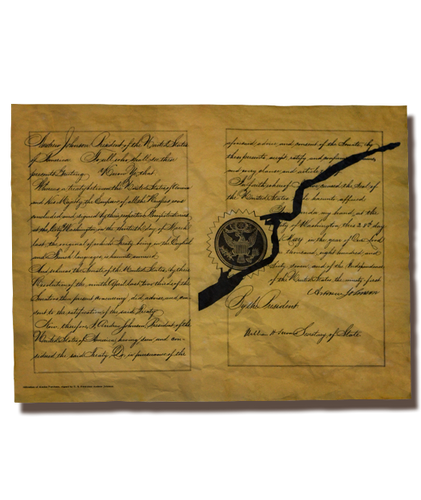 Andrew Johnson President of the United States
of America To all who shall see these
presents Greeting: Know Ye that
Whereas a treaty between the United States of America
and His Majesty the Emperor of all the Russias was
concluded and signed by their respective
at the City Washington on the thirtieth day of March
last, the original of which Treaty being in the English
and French languages, is hereunto annexed
And whereas the Senate of the United States, by their
Resolution of the ninth of April last two thirds of the
Senators then present concurring, did advise, and con-
sent to the ratification of the said Treaty
Now therefore, I, Andrew Johnson, President of the
United States of America, having seen and con-
sidered the said Treaty Do, in pursuance of the
aforesaid, advice, and consent of the Senate, by
these presents, accept, ratify and confirm
and every clause, and article
caused the Seal of
the United States to be hereunto affixed
under my hand, at the
City of Washington, this 28th day
May, in the year of Our Lord
One thousand, eight hundred, and
sixty seven, and of the Independence
of the United States, the ninety first
Andrew Johnson
By the President
William H. Seward Secretary of State